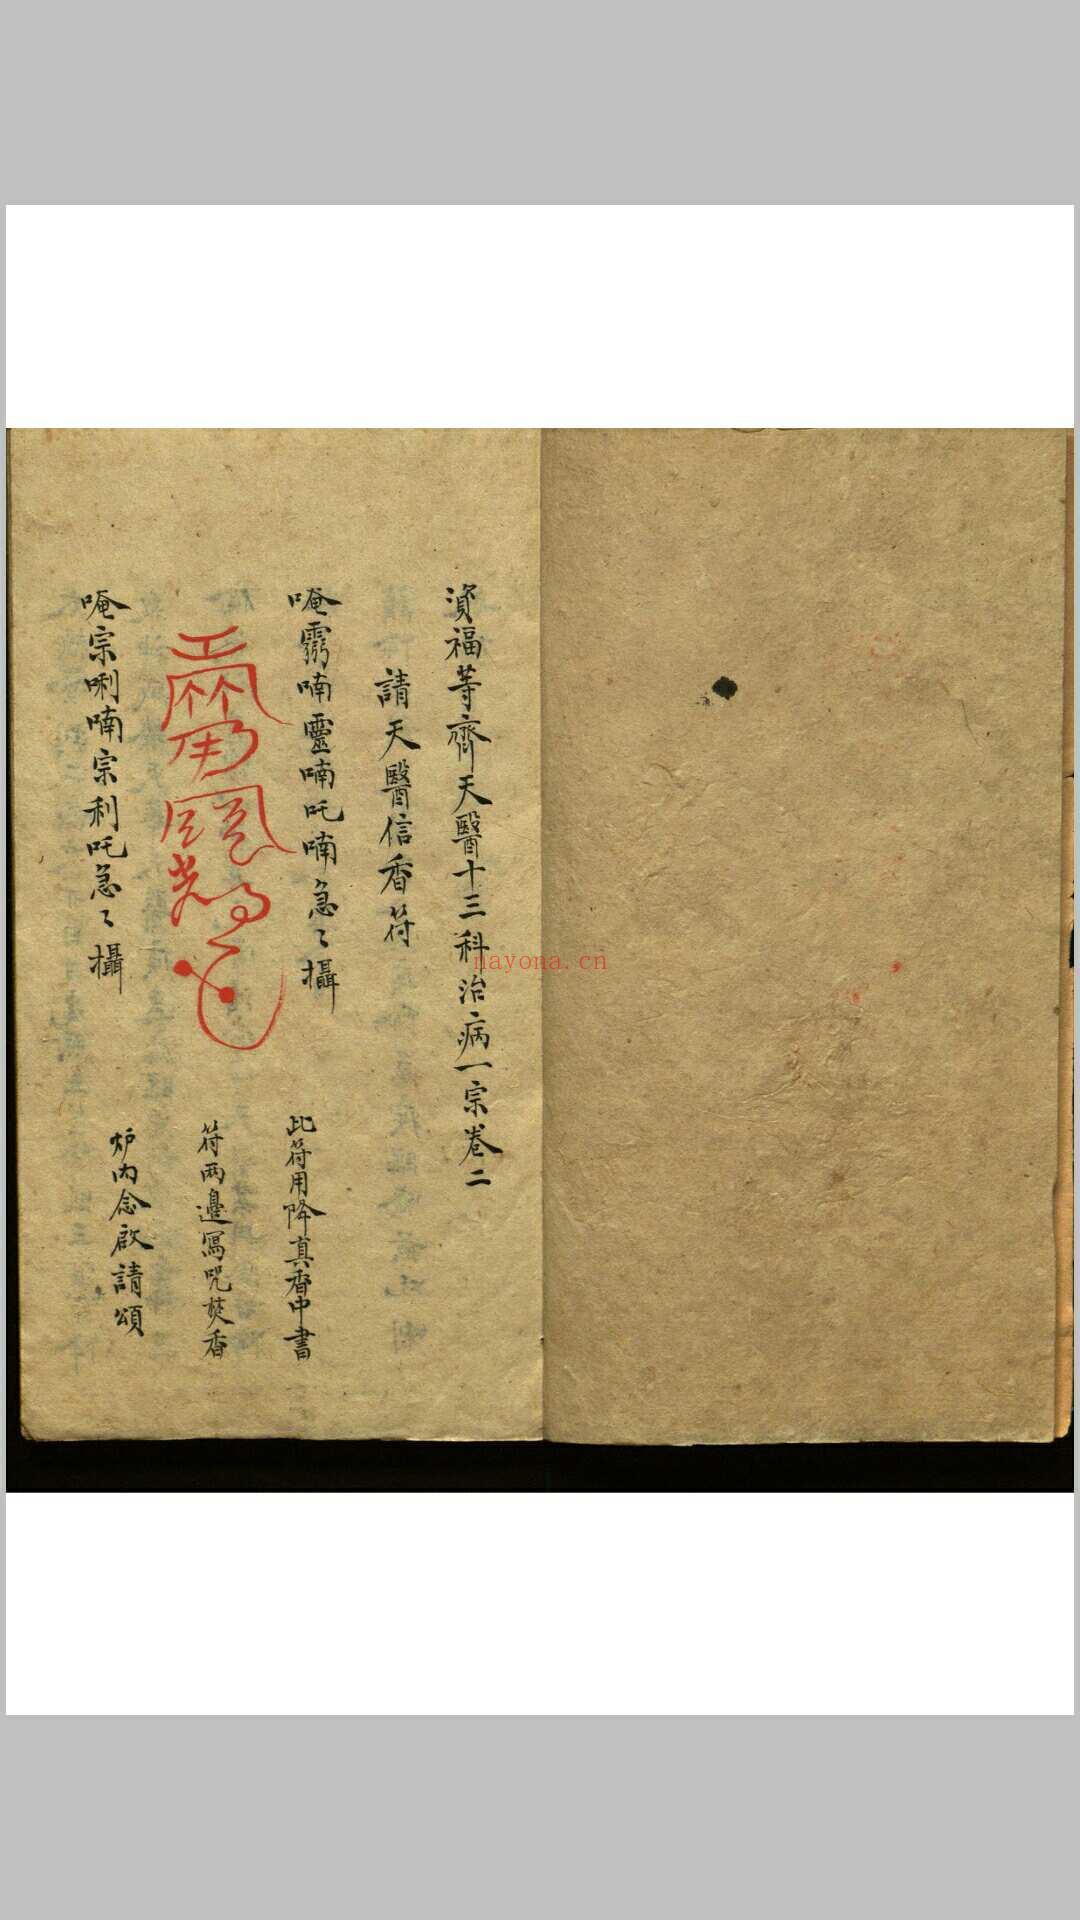 資福等齊天醫十三科治病一宗卷二
請天醫信香符
唵霛喃靈喃吒喃急〻攝
此符用降真香中書
符兩邊寫咒焚香
唵宗唎喃宗利吒急〻攝
炉内念啟請頌
nayona.cn